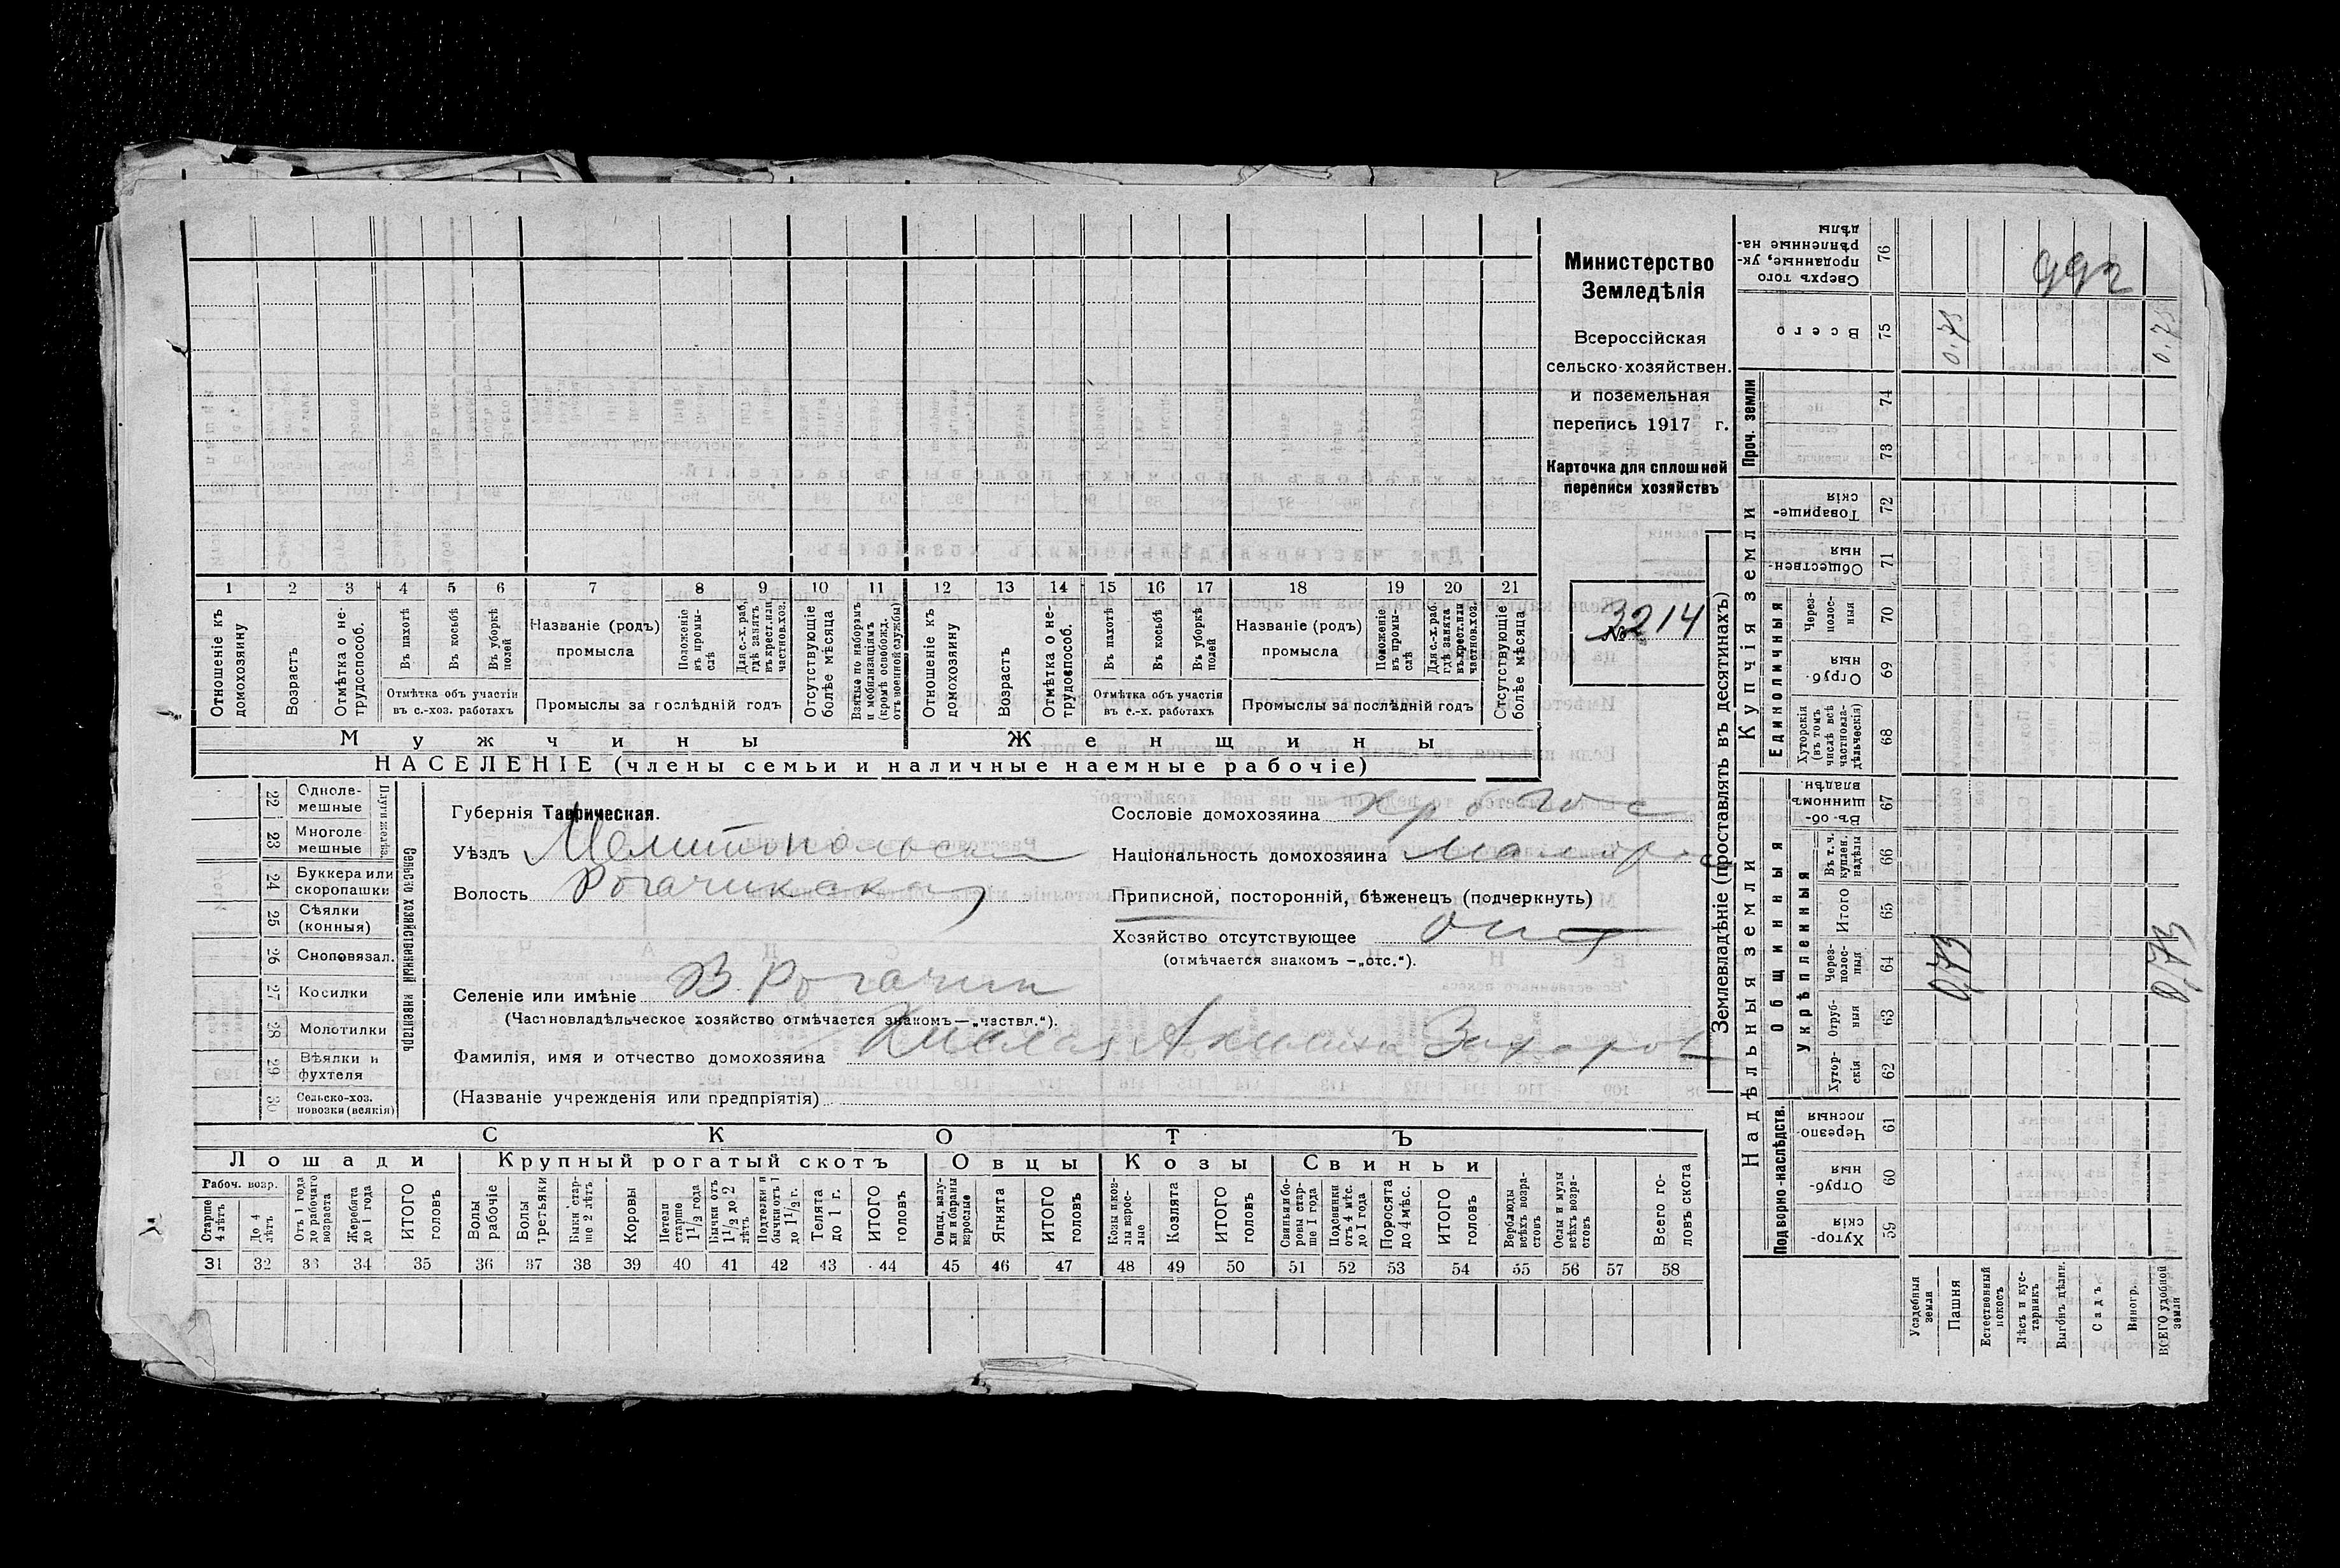 Министерство
Земледѣлія
Всероссійская
сельско-хозяйствен.
и поземельная
перепись 1917 г.
Карточка для сплошной
переписи хозяйствъ
№ 3214
1 2 3 4 5 6 7 8 9 10 11 12 13 14 15 16 17 18 19 20 21
Отношеніе къ домохозяину
Возрастъ
Отмѣтка о не-трудоспособ.
Въ пахотѣ
Въ косьбѣ
Въ уборкѣ полей
Отмѣтка объ участіи въ с.-хоз. работахъ
Названіе (родъ) промысла
Положеніе въ промы-слѣ
Для с.-х. раб. гдѣ занятъ въ крест. или частнов. хоз.
Промыслы за послѣдній годъ
Отсутствующіе болѣе мѣсяца
Взятые по наборамъ и мобилизаціямъ (кромѣ освобожд. отъ военной службы)
Отношеніе къ домохозяину
Возрастъ
Отмѣтка о не-трудоспособ.
Въ пахотѣ
Въ косьбѣ
Въ уборкѣ полей
Отмѣтка объ участіи въ с.-х. работахъ
Названіе (родъ) промысла
Положеніе въ промы-слѣ
Для с.-х. раб. гдѣ занята въ крест. или частнов. хоз.
Промыслы за послѣдній годъ
Отсутствующіе болѣе мѣсяца
Мужчины Женщины
НАСЕЛЕНІЕ (члены семьи и наличные наемные рабочіе)
Сельско хозяйственный инвентарь
Плуги желѣз.
22 Одноле-мешные
23 Многоле мешные
24 Буккера или скоропашки
25 Сѣялки (конныя)
26 Сноповязал.
27 Косилки
28 Молотилки
29 Вѣялки и фухтеля
30 Сельско-хоз. повозки (всякія)
Губернія Таврическая.
Уѣздъ Мелитопольский
Волость Рогачикская
Селеніе или имѣніе В. Рогачик
(Частновладѣльческое хозяйство отмѣчается знакомъ—„частвл.“).
Фамилія, имя и отчество домохозяина Захаров
(Названіе учрежденія или предпріятія)
Сословіе домохозяина
Національность домохозяина Малор
Приписной, посторонній, бѣженецъ (подчеркнуть)
Хозяйство отсутствующее
(отмѣчается знакомъ —„отс.“).
СКОТЪ
Лошади Крупный рогатый скотъ Овцы Козы Свиньи
Рабоч. возр.
Старше 4 лѣтъ
До 4 лѣтъ
Отъ 1 года до рабочаго возраста
Жеребята до 1 года
ИТОГО головъ
Волы рабочіе
Волы третьяки
Быки стар-ше 2 лѣтъ
Коровы
Нетели старше 1 1/2 года
Бычки отъ 1 1/2 до 2 лѣтъ
Подтелки и бычки отъ 1 до 1 1/2 г.
Телята до 1 г.
ИТОГО головъ
Овцы, валу-хи и бараны взрослые
Ягнята
ИТОГО головъ
Козы и коз-лы взрос-лые
Козлята
ИТОГО головъ
Свиньи и бо-ровы стар-ше 1 года
Подсвинки отъ 4 мѣс. до 1 года
Поросята до 4 мѣс.
ИТОГО головъ
Верблюды всѣхъ возра-стовъ
Ослы и мулы всѣхъ возра-стовъ
Всего го-ловъ скота
31 32 33 34 35 36 37 38 39 40 41 42 43 44 45 46 47 48 49 50 51 52 53 54 55 56 57 58
Землевладѣніе (проставлять въ десятинахъ)
Надѣльныя земли Купчія земли Проч. земли
Подворно-наслѣдств. Общинныя Единоличныя
Укрѣпленныя
Хутор-скія 59
Отруб-ныя 60
Черезпо-лосныя 61
Хутор-скія 62
Отруб-ныя 63
Через-полос-ныя 64
Итого 65
Въ т. ч. куплен. надѣлы 66
Въ об-щинномъ владѣн. 67
Хуторскія (въ томъ числѣ всѣ частновла-дѣльческія) 68
Отруб-ныя 69
Через-полос-ныя 70
Обществен-ныя 71
Товарище-скія 72
73
74
Всего 75
Сверхъ того проданные, ук-рѣпленные на-дѣлы 76
992
0.73 0.73
0,73 0,73
Усадебная земля
Пашня
Естественный покосъ
Лѣсъ и кус-тарникъ
Выгонъ цѣлин.
Садъ
Виногр.
ВСЕГО удобной земли